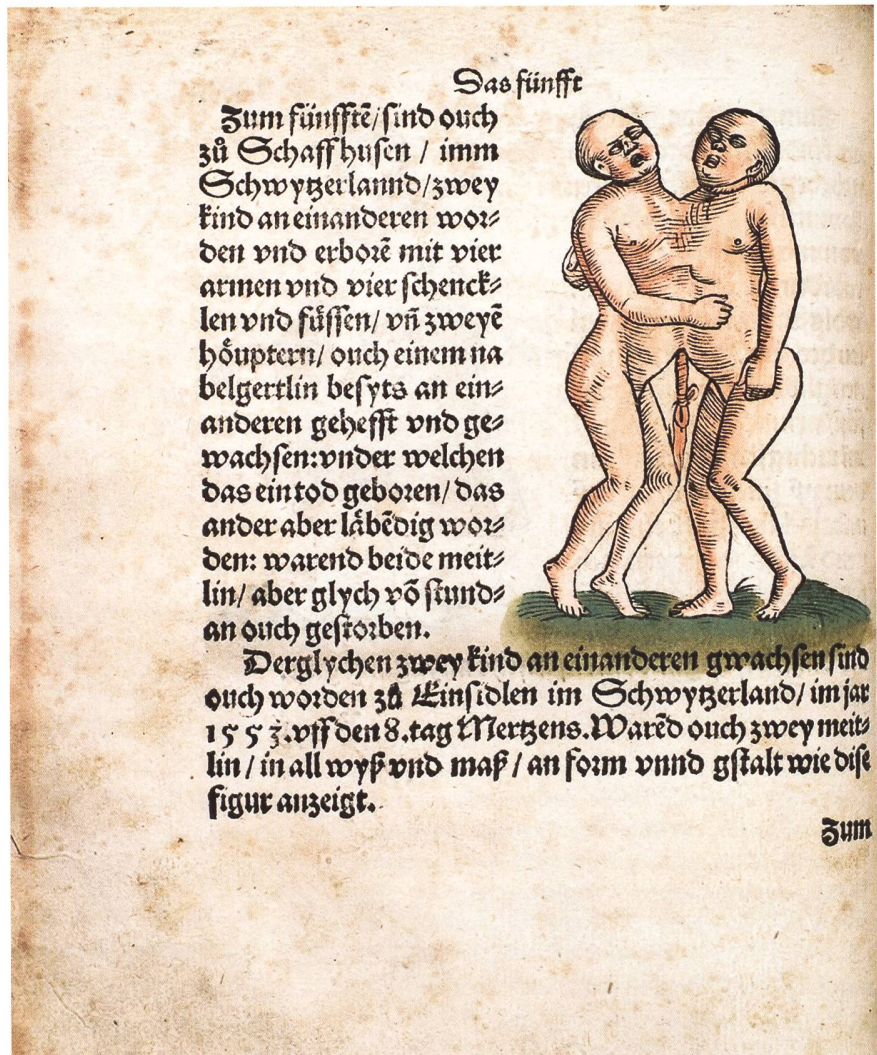 Das fünfft
Zum fünfftē/ sind ouch
zů Schaffhusen / imm
Schwytzerlannd/ zwey
kind an einanderen wor⸗
den vnd erborē mit vier
armen vnd vier schenck⸗
len vnd füssen/ vñ zweyē
höuptern/ ouch einem na
belgertlin besyts an ein⸗
anderen gehefft vnd ge⸗
wachsen: vnder welchen
das ein tod geboren/ das
ander aber läbēdig wor⸗
den: warend beide meit⸗
lin/ aber glych vō stund⸗
an ouch gestorben.
Derglychen zwey kind an einanderen gwachsen sind
ouch worden zů Einsidlen im Schwytzerland/ im jar
1553. vff den 8. tag Mertzens. Warēd ouch zwey meit⸗
lin / in all wyß vnd maß / an form vnnd gstalt wie dise
figur anzeigt.
Zum